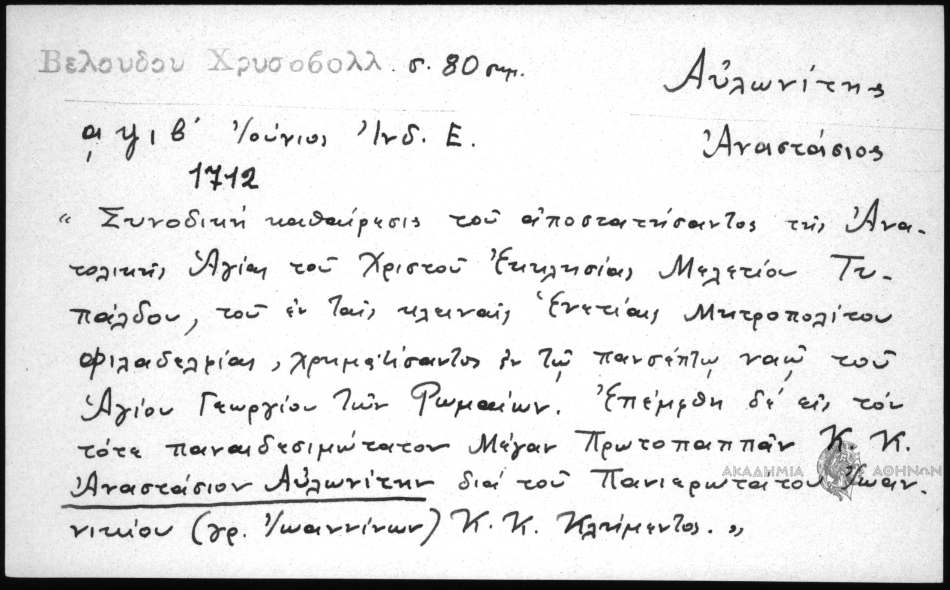 Βελουδου Χρυσοβολλ. σ. 80 σημ.
Αὐλωνίτης
Ἀναστάσιος
͵αψιβʹ Ἰούνιος Ἰνδ. Ε.
1712
« Συνοδική καθαίρεσις τοῦ ἀποστατήσαντος τῆς Ἀνα-
τολικῆς Ἁγίας τοῦ Χριστοῦ Ἐκκλησίας Μελετίου Τυ-
πάλδου, τοῦ ἐν ταῖς κλειναῖς Ἑνετίαις Μητροπολίτου
Φιλαδελφίας, χρηματίσαντος ἐν τῷ πανσέπτῳ ναῷ τοῦ
Ἁγίου Γεωργίου τῶν Ρωμαίων. Ἐπέμφθη δέ εἰς τόν
τότε παναιδεσιμώτατον Μέγαν Πρωτοπαππᾶν Κ. Κ.
ΑΚΑΔΗΜΙΑ ΑΘΗΝΩΝ
Ἀναστάσιον Αὐλωνίτην διά τοῦ Πανιερωτάτου Ἰωαν-
νικίου (γρ. Ἰωαννίνων) Κ. Κ. Κλήμεντος. »